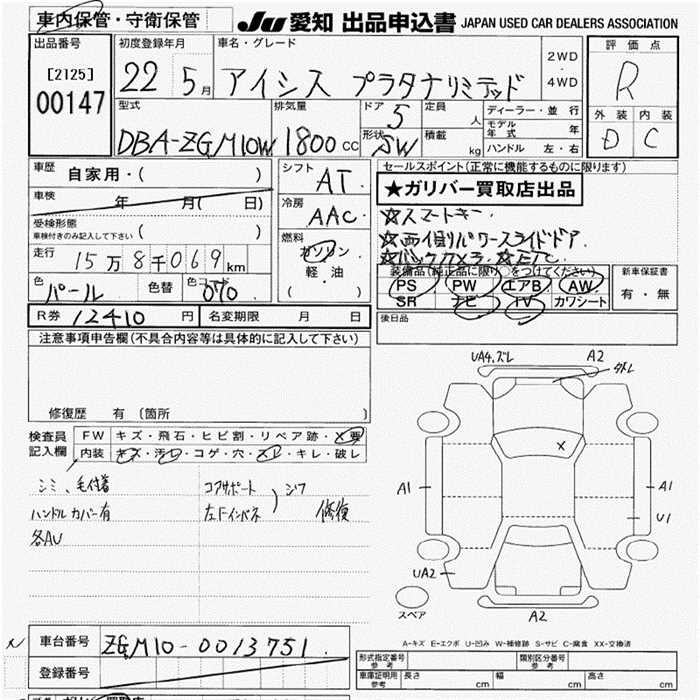 車内保管・守衛保管
JU 愛知 出品申込書 JAPAN USED CAR DEALERS ASSOCIATION
出品番号
[2125]
00147
初度登録年月
22 5月
車名・グレード
アイシス プラタナリミテッド
2WD
・
4WD
評価点
R
外装 内装
D C
型式
DBA-ZGM10W
排気量
1800 CC
ドア
5
形状
SW
定員
人
積載
kg
ディーラー・並行
モデル年式 年
ハンドル 左・右
車歴
自家用・( )
車検
年 月( 日)
受検形態
車検付きのみ記入して下さい ( )
走行
15万8千069km
色
パール
色替
色コード
070
シフト
AT
冷房
AAC
燃料
ガソリン
軽・油
( )
セールスポイント(正常に機能するものに限ります)
★ガリバー買取店出品
☆スマートキー
☆両側パワースライドドア
☆バックカメラ ☆ETC
装備品(純正品に限り○をつけてください)
PS PW エアB AW
SR ナビ TV カワシート
新車保証書
有・無
R券 12410 円
名変期限 月 日
後日品
注意事項申告欄(不具合内容等は具体的に記入して下さい)
修復歴 有 (箇所 )
検査員
記入欄
FW キズ・飛石・ヒビ割・リペア跡・X要
内装 キズ・汚レ・コゲ・穴・スレ・キレ・破レ
シミ、毛付着
ハンドルカバー有
各AU
コアサポート
左Fインパネ
シワ
修復
UA4,ズレ
A2
外レ
X
A1
A1
U1
UA2
A2
スペア
A-キズ E-エクボ U-凹み W-補修跡 S-サビ C-腐食 XX-交換済
車台番号 ZGM10-0013751
登録番号
形式指定番号
参考
類別区分番号
参考
車庫証明用
参考
長さ cm 幅 cm 高さ cm